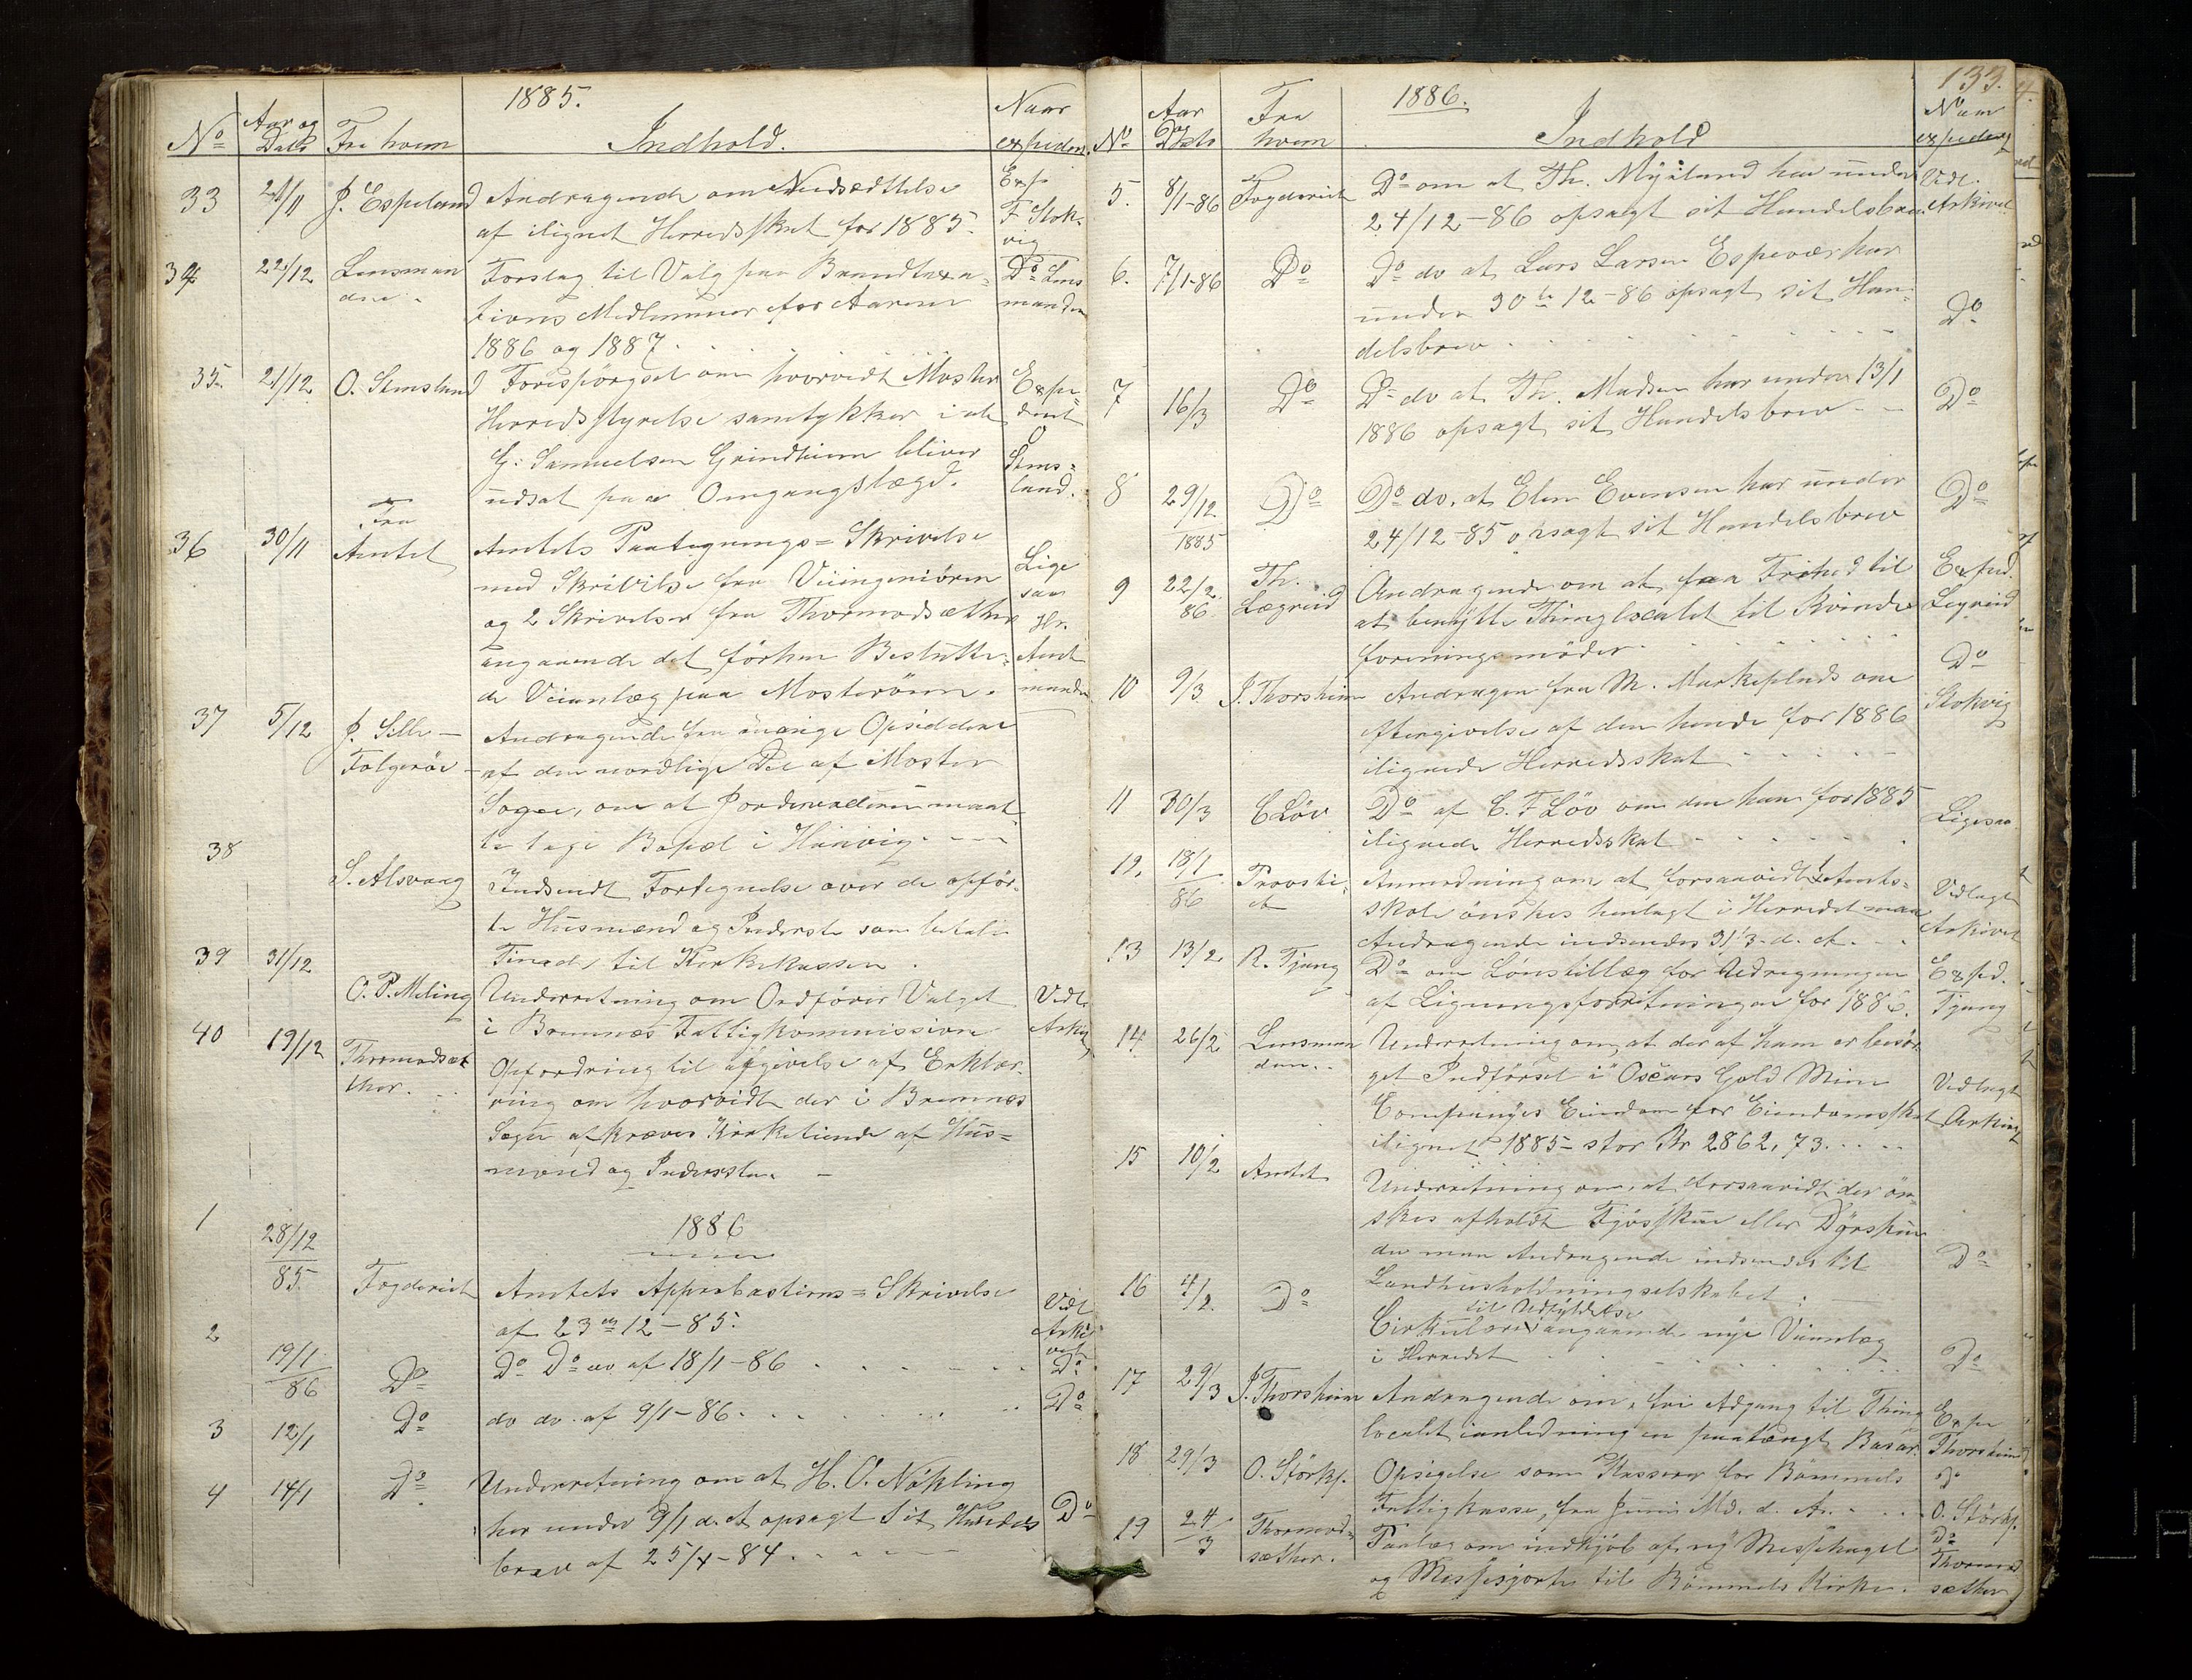 1885.
No Aar og Dato Fra hvem Indhold. Naar expeder.
33 21/11 J. Espeland Andragende om Nedsættelse Exp.
af ilignet Herredsskat for 1885. F Stok-
vig
34 22/12 Lensman Forslag til Valg paa Brandtaxa- Do Lens
den. tions Medlemmer for Aarene manden
1886 og 1887.
35. 21/12 O. Stemsland Forespörgsel om hvorvidt Moster Expe-
Herredsstyrelse samtykker i at dert
G. Samuelsen Grindheim bliver O
udsat paa Omgangslægd. Stems-
land.
36 30/11 Fra Amtet Amtets Paategnings= Skrivelse
med Skrivelse fra Veiingeniören Lige
og 2 Skrivelser fra Thormodsæther saa
angaaende det förhen Beslutte- Hr. Amt
de Veianlæg paa Mosterøen. manden
37 5/12 J. Sille - Andragende fra mange Opsiddere
Folgeröe - af den nordlige Del af Moster
Sogn, om at Jordemoderen maat-
te tage Bopæl i Hanvig
38 S. Alsvaag Indsendt Fortegnelse over de opför-
te Husmænd og Inderste som betale
Tiende til Kirkekassen.
39 31/12 O. P. Meling Underretning om Ordförer Valget Vedl.
i Bremnæs Fattigkommission Arkiv
40 19/12 Thormodsæ- Opfordring til afgivelse af Erklæ-
ther. ring om hvorvidt der i Bremnes
Sogn afkræves Kirketiende af Hus=
mænd og Inderster.
1886
1 28/12 85. Fogderiet Amtets Approbastions= Skrivelse Vedl
af 23 12-85. Arki-
vet
2 19/1 86 Do Do Do af 18/1-86 Do
3 12/1 Do do do. af 9/1-86. Do
4 14/1 Do Underretning om at H. O. Nökling
har under 9/1 d. A opsagt sit Handels Do
brev af 25/4-84.
133.
1886.
No Aar og Dato Fra hvem Indhold Naar expedery
5. 8/1-86 Fogderiet Do om at Th. Myrland har under Vedl.
24/12-86 opsagt sit Handelsbrev Arkivet
6. 7/1-86 Do Do do at Lars Larsen Espevær har
under 30te 12-86 opsagt sit Han-
delsbrev Do
7 16/3 Do Do do at Th. Madsen har under 13/1 Do
1886 opsagt sit Handelsbrev
8 29/12 1885 Do Do do. at Elen Evensen har under Do
24/12-85 opsagt sit Handelsbrev
9 22/2 86. Th. Lægreid Andragende om at faa Frihed til Exped.
at benytte Thinglocalet til Kvinde- Legreid
foreningsmöder.
10 9/3 J. Thorsheim Andragen fra M. Markeplads om Do
eftergivelse af den hende for 1886 Stokvig
ilignede Herredsskat
11 30/3 C Löv Do af C. F Löv om den ham for 1885 Ligesaa
ilignede Herredsskat
12. 18/1 86 Provsti- Anmodning om at forsaavidt Amts-
et skole önskes henlagt i Herredet maa Vedlagt
Andragende indsendes 31/3. d. A. Arkivet
13 13/2 R. Tjong Do om Lönstillæg for Uddregningen Exped.
af Ligningsforretningen for 1886. Tjong
14 26/2 Lensman Underretning om, at der af ham er besör-
den. get Indförsel i Oscars Gold Mine Vedlagt
Companyes Eiendom for Eiendomsskat Arkivet
ilignet 1885 - stor Kr 2862,73.
15 10/2 Amtet Underretning om, at forsaavidt der ön-
skes afholdt Fjösskue eller Dyrskue
der maa Andragende indsendes til Do
Landhusholdningsselskabet
16 4/2. Do til Udfyldelse
Cirkulære angaaende nye Veianlæg
i Herredet Do
17 29/3 J. Thorsheim Andragende om, fri Adgang til Thing Expe
localet i anledning en paatænkt Basar. Thorsheim
18 29/3 O. Störks. Opsigelse som Kasserer for Bömmels Do
Fattigkasse, fra Juni Md. d. A. O. Störks.
19 24/3 Thormod- Paalæg om indkjöb af ny Messehagel Do
sæther. og Messesjorte til Bömmels Kirke. Thormod
sæther